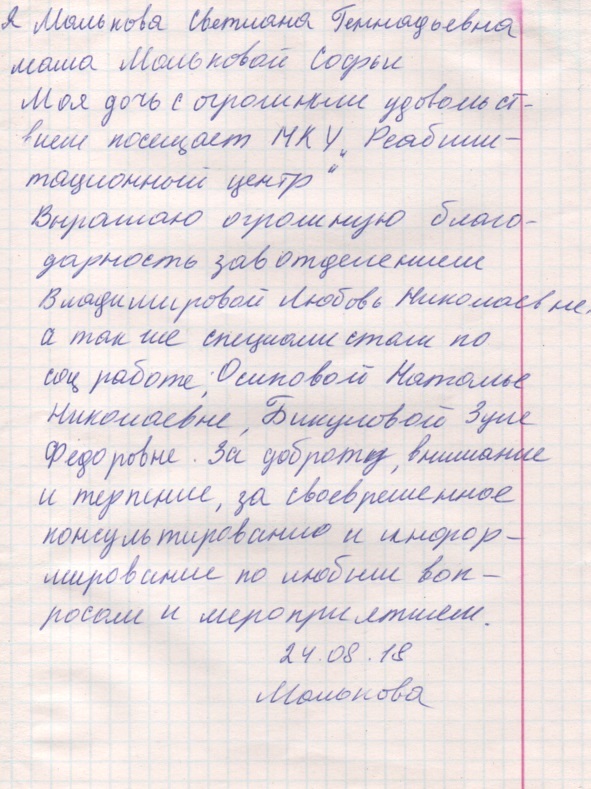 Я Малькова Светлана Геннадьевна
мама Мальковой Софьи
Моя дочь с огромным удовольст-
вием посещает МКУ „Реабили-
тационный центр"
Выражаю огромную благо-
дарность зав отделением
Владимировой Любовь Николаевне,
а так же специалистам по
соц работе; Осиповой Наталье
Николаевне, Бикуловой Зуле
Федоровне. За доброту, внимание
и терпение, за своевременное
консультирование и инфор-
мирование по любым воп-
росам и мероприятием.
24.08.18
Малькова